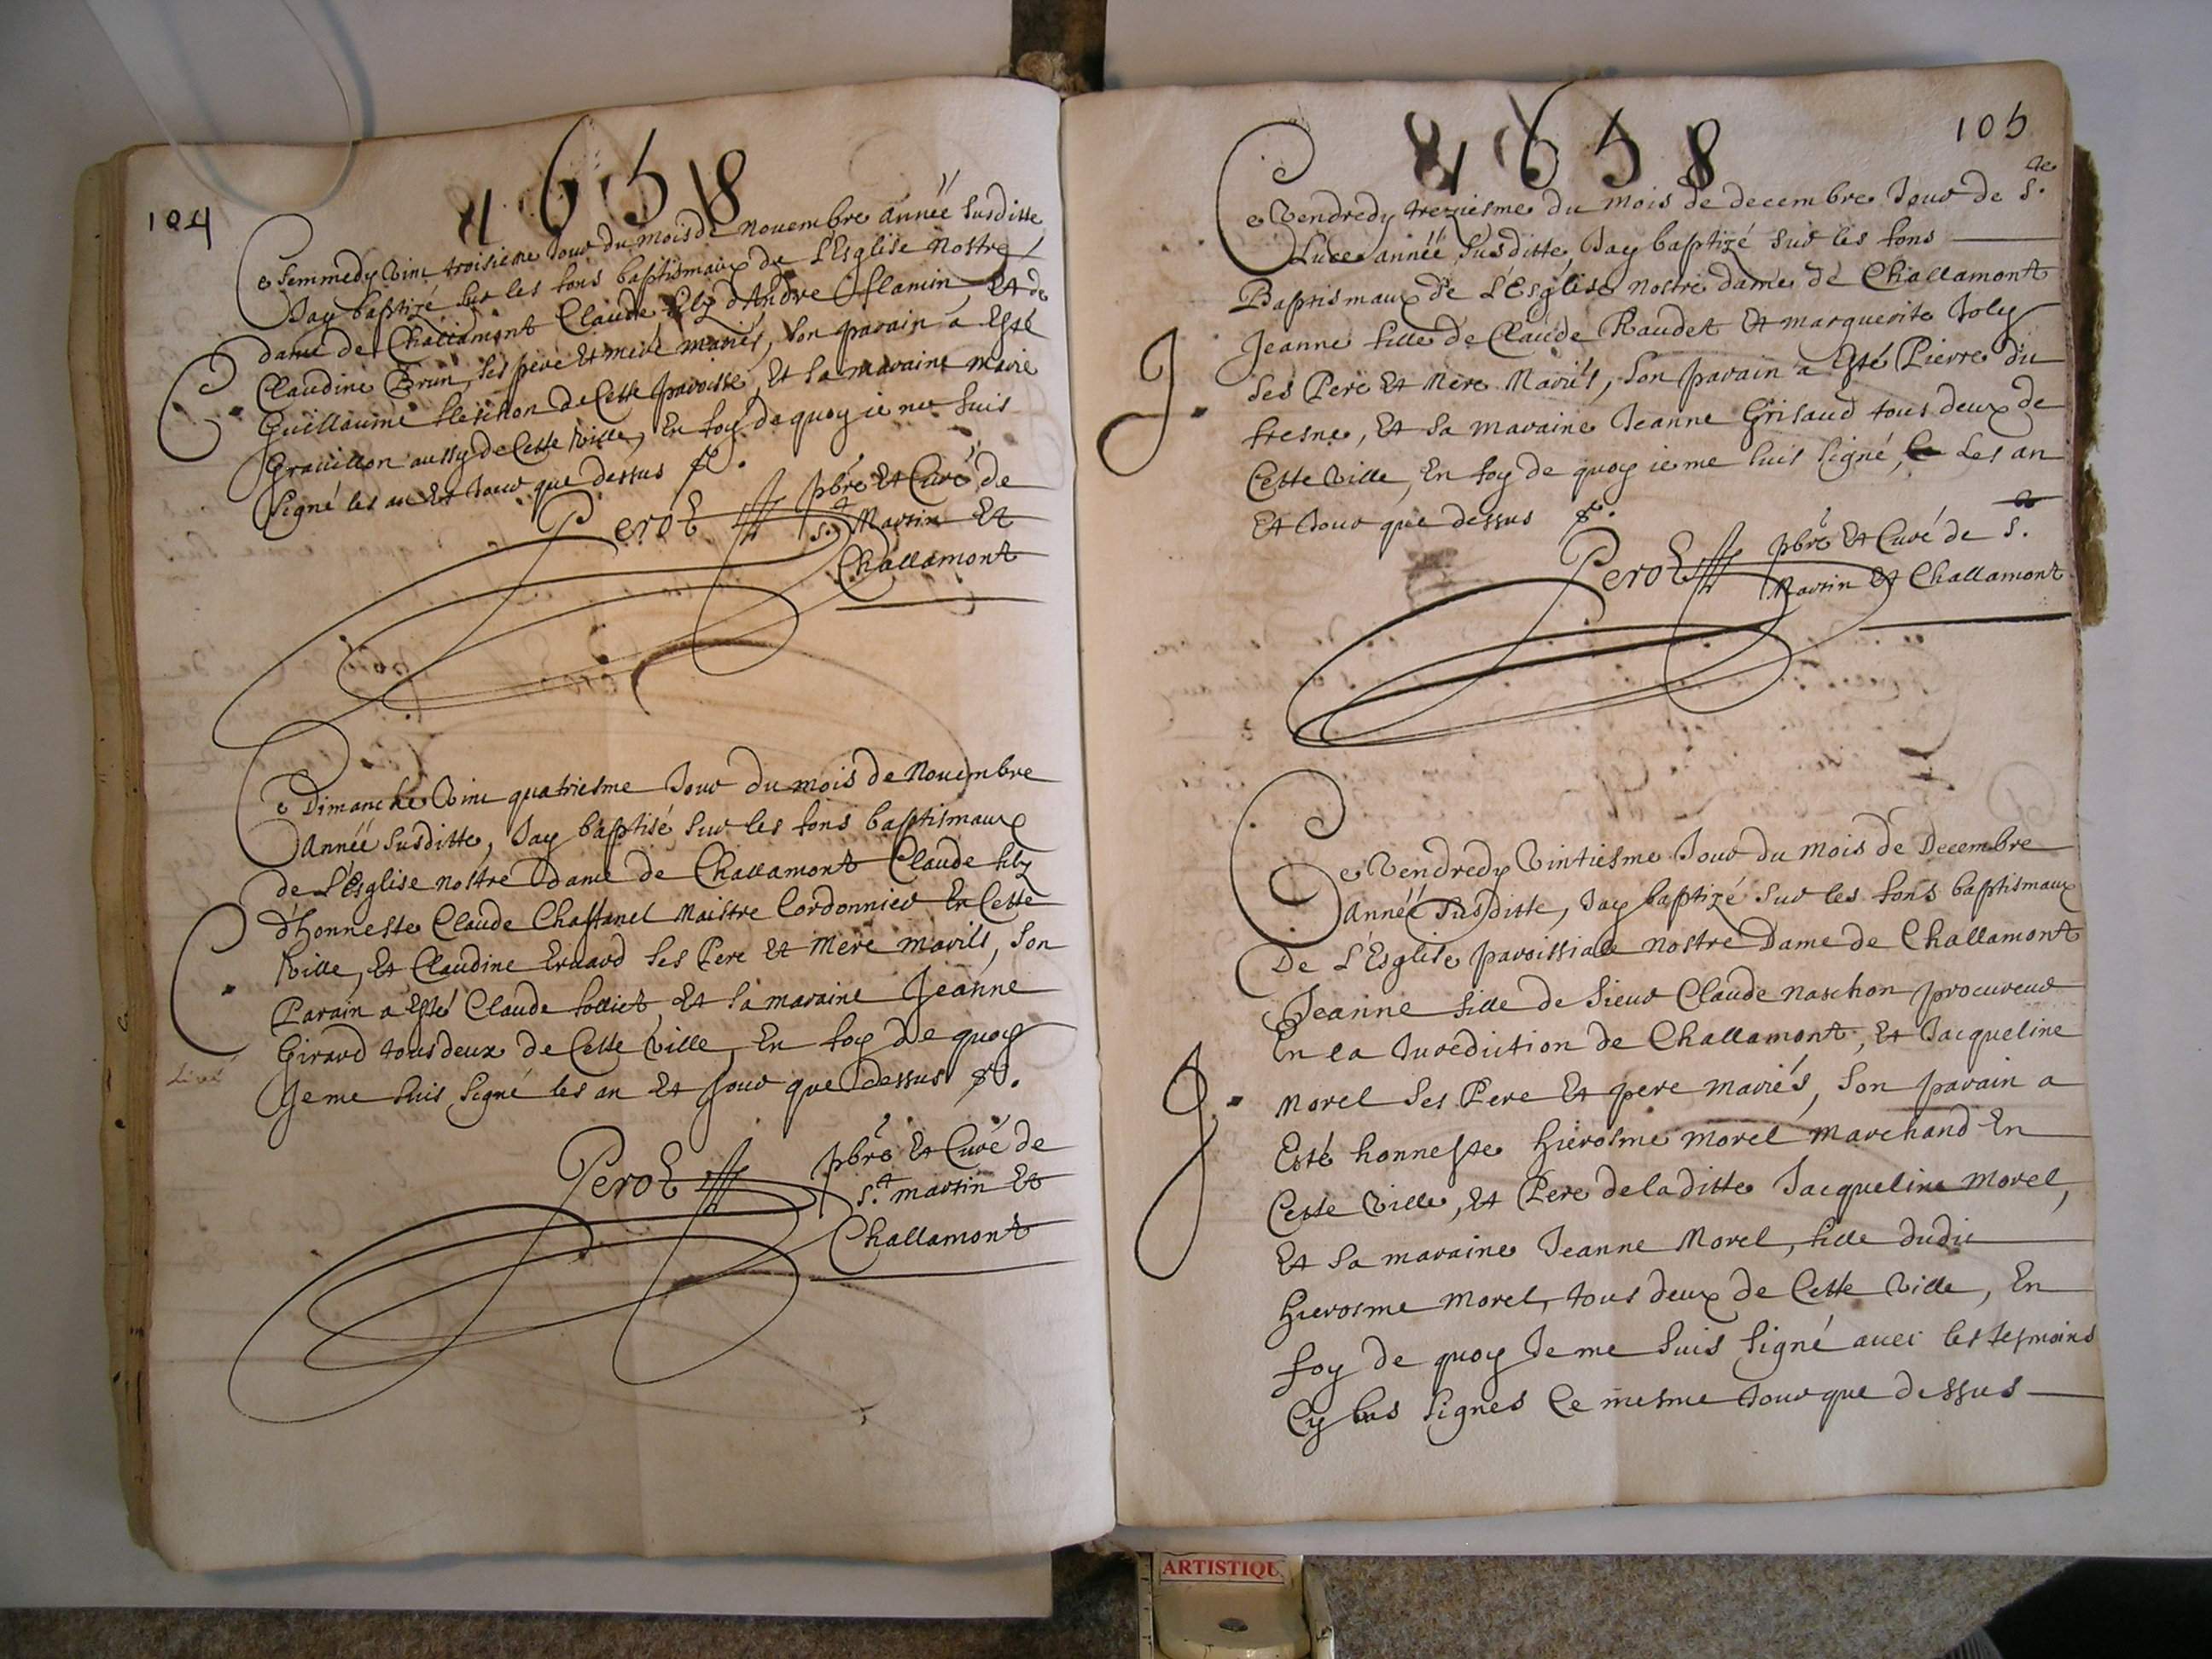 104
1658
Ce semmedy vint troisieme Jour du mois de Nouembre année susditte
Jay baptizé sur les fons baptismaux de L'Esglise nostre
dame de Challamont Claude filz d'Andre flamin, Et de
Claudine Brun, ses pere Et mere mariés, son parain a Esté
Guillaume de Cette paroisse, Et sa maraine marie
Grauillon aussy de Cette ville, En foy de quoy ie me suis
signé les an Et Jour que dessus &.
Perot pbre Et Curé de
St. Martin Et
Challamont
C.
Ce Dimanche vint quatriesme Jour du mois de Nouembre
année susditte, Jay baptisé sur les fons baptismaux
de L'Esglise nostre Dame de Challamont Claude filz
d'honneste Claude Chastanel Maistre Cordonnier En Cette
Ville, Et Claudine Eruard ses Pere Et Mere mariés, son
Parain a Esté Claude folliet, Et sa maraine Jeanne
Girard tous deux de Cette ville, En foy de quoy
Je me suis signé les an Et Jour que dessus &.
C.
Perot pbre Et Curé de
St. martin Et
Challamont
105
1658
Ce Vendredy treziesme du mois de decembre Jour de Ste
Luce année susditte, Jay baptizé sur les fons
Baptismaux de L'Esglise nostre dame de Challamont
Jeanne fille de Claude Raudet Et marguerite Joly
ses Pere Et Mere Mariés, son parain a Esté Pierre du
fresne, Et sa maraine Jeanne Grisaud tous deux de
Cette Ville, En foy de quoy ie me suis signé, Les an
Et Jour que dessus &.
J.
Perot pbre Et Curé de S.
Martin Et Challamont
Ce Vendredy Vintiesme Jour du Mois de Decembre
année susditte, Jay baptizé sur les fons baptismaux
De L'Esglise paroissiale nostre Dame de Challamont
Jeanne fille de Sieur Claude naschon procureur
En la Juredition de Challamont, Et Jacqueline
Morel ses Pere Et pere mariés, son parain a
Esté honneste hierosme morel marchand En
Cette Ville, Et Pere de laditte Jacqueline Morel,
Et sa maraine Jeanne Morel, fille dudit
hierosme morel, tous deux de Cette Ville, En
foy de quoy Je me suis signé auec les tesmoins
Cy bas signes Le mesme Jour que dessus
J.
ARTISTIQU